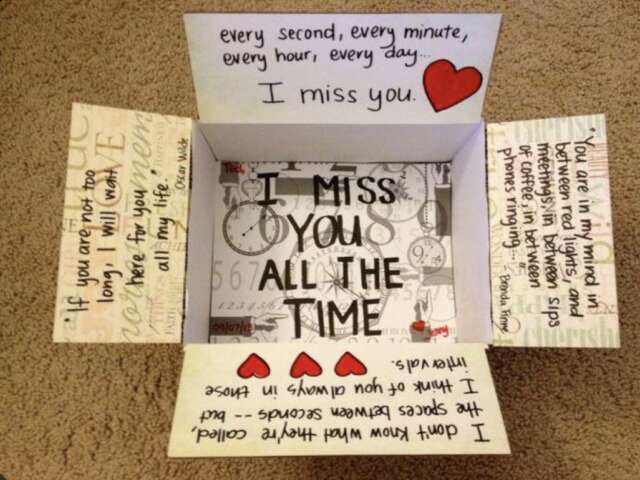 every second, every minute,
every hour, every day...
I miss you.
"If you are not too
long, I will wait
here for you
all my life."
Oscar Wilde
I MISS
YOU
ALL THE
TIME
09/07/13
"You are in my mind in
between red lights, and
meetings, in between sips
of coffee, in between
phones ringing..."
I don't know what they're called,
the spaces between seconds -- but
I think of you always in those
intervals.